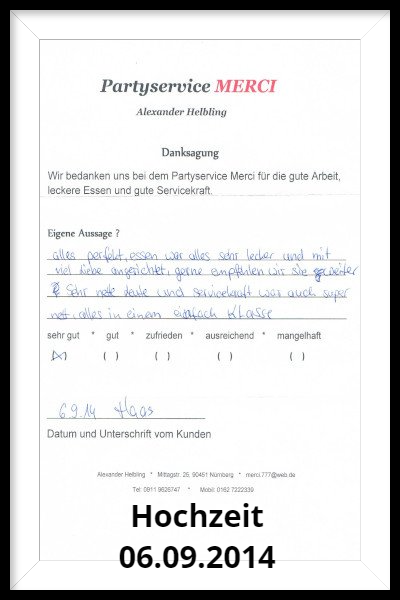 Partyservice MERCI
Alexander Helbling
Danksagung
Wir bedanken uns bei dem Partyservice Merci für die gute Arbeit,
leckere Essen und gute Servicekraft.
Eigene Aussage ?
alles perfekt, essen war alles sehr lecker und mit
viel liebe angerichtet, gerne empfehlen wir sie weiter
Sehr nette leute und servicekraft war auch super
nett, alles in einem einfach Klasse
sehr gut * gut * zufrieden * ausreichend * mangelhaft
(x) ( ) ( ) ( ) ( )
6.9.14 Haas
Datum und Unterschrift vom Kunden
Alexander Helbling * Mittagstr. 25, 90451 Nürnberg * merci.777@web.de
Tel: 0911 9626747 * Mobil: 0162 7222339
Hochzeit
06.09.2014